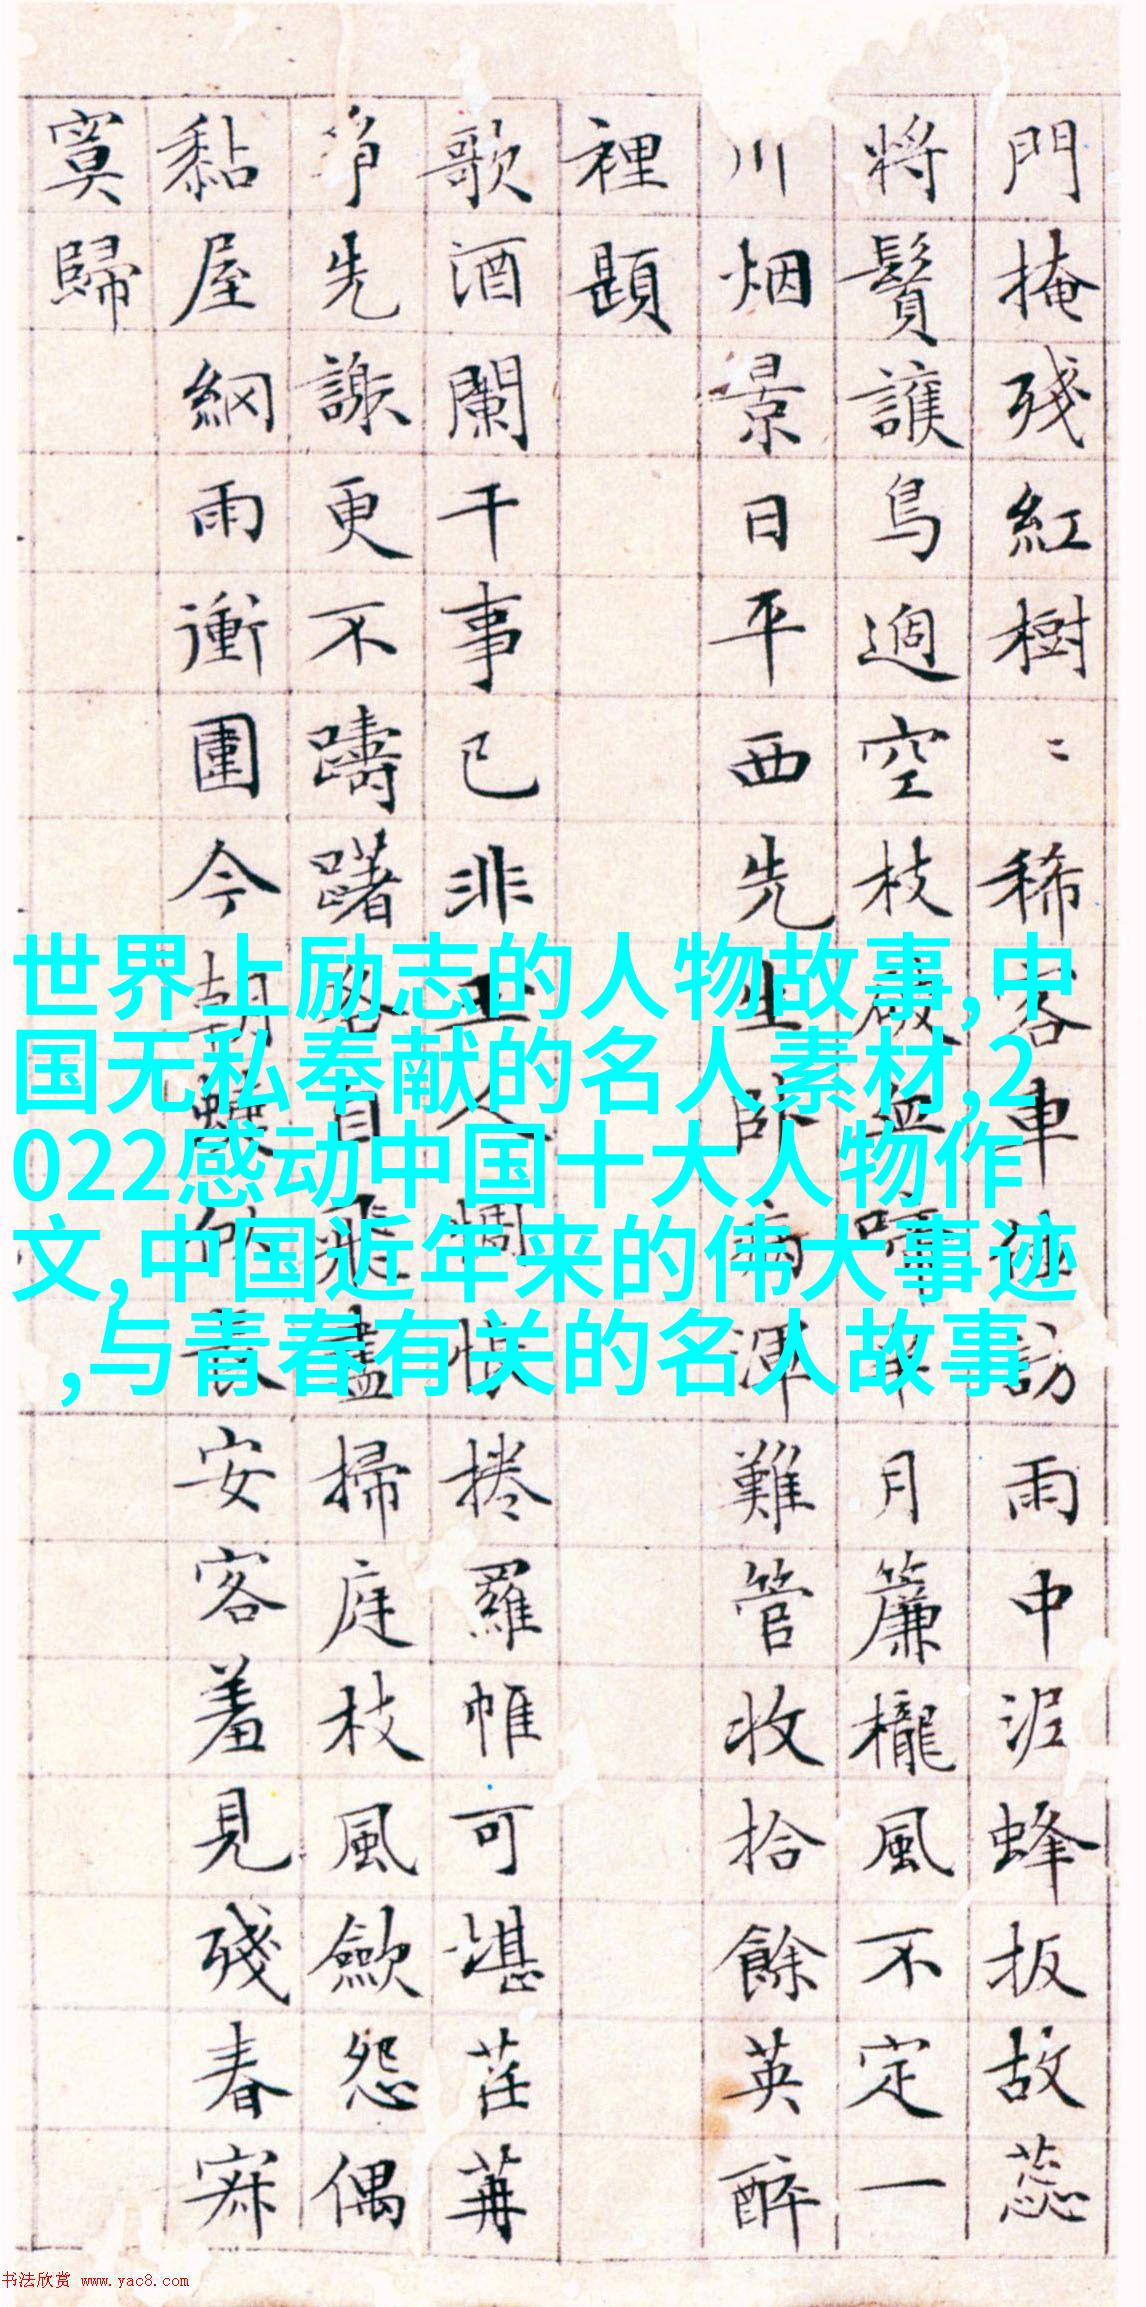 門掩殘紅樹〻稀客車訪雨中泥蜂扳故蕊
將鬢護鳥過空枝啼月簾櫳風不定一
川烟景日平西先生臥病渾難管收拾餘英醉
裡題
歌酒闌干事已非玉人惆悵捲羅帷可堪荏苒
爭先謝更不躊躇各自飛盡掃庭枝風歛怨偶
黏屋網雨衝圍今朝長安客羞見殘春寂
寞歸
世界上励志的人物故事,中
国无私奉献的名人素材,2
022感动中国十大人物作
文,中国近年来的伟大事迹
,与青春有关的名人故事
书法欣赏 www.yac8.com